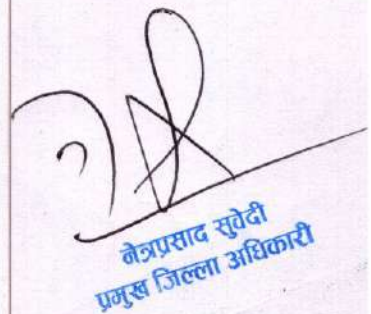 नेत्रप्रसाद सुवेदी
प्रमुख जिल्ला अधिकारी